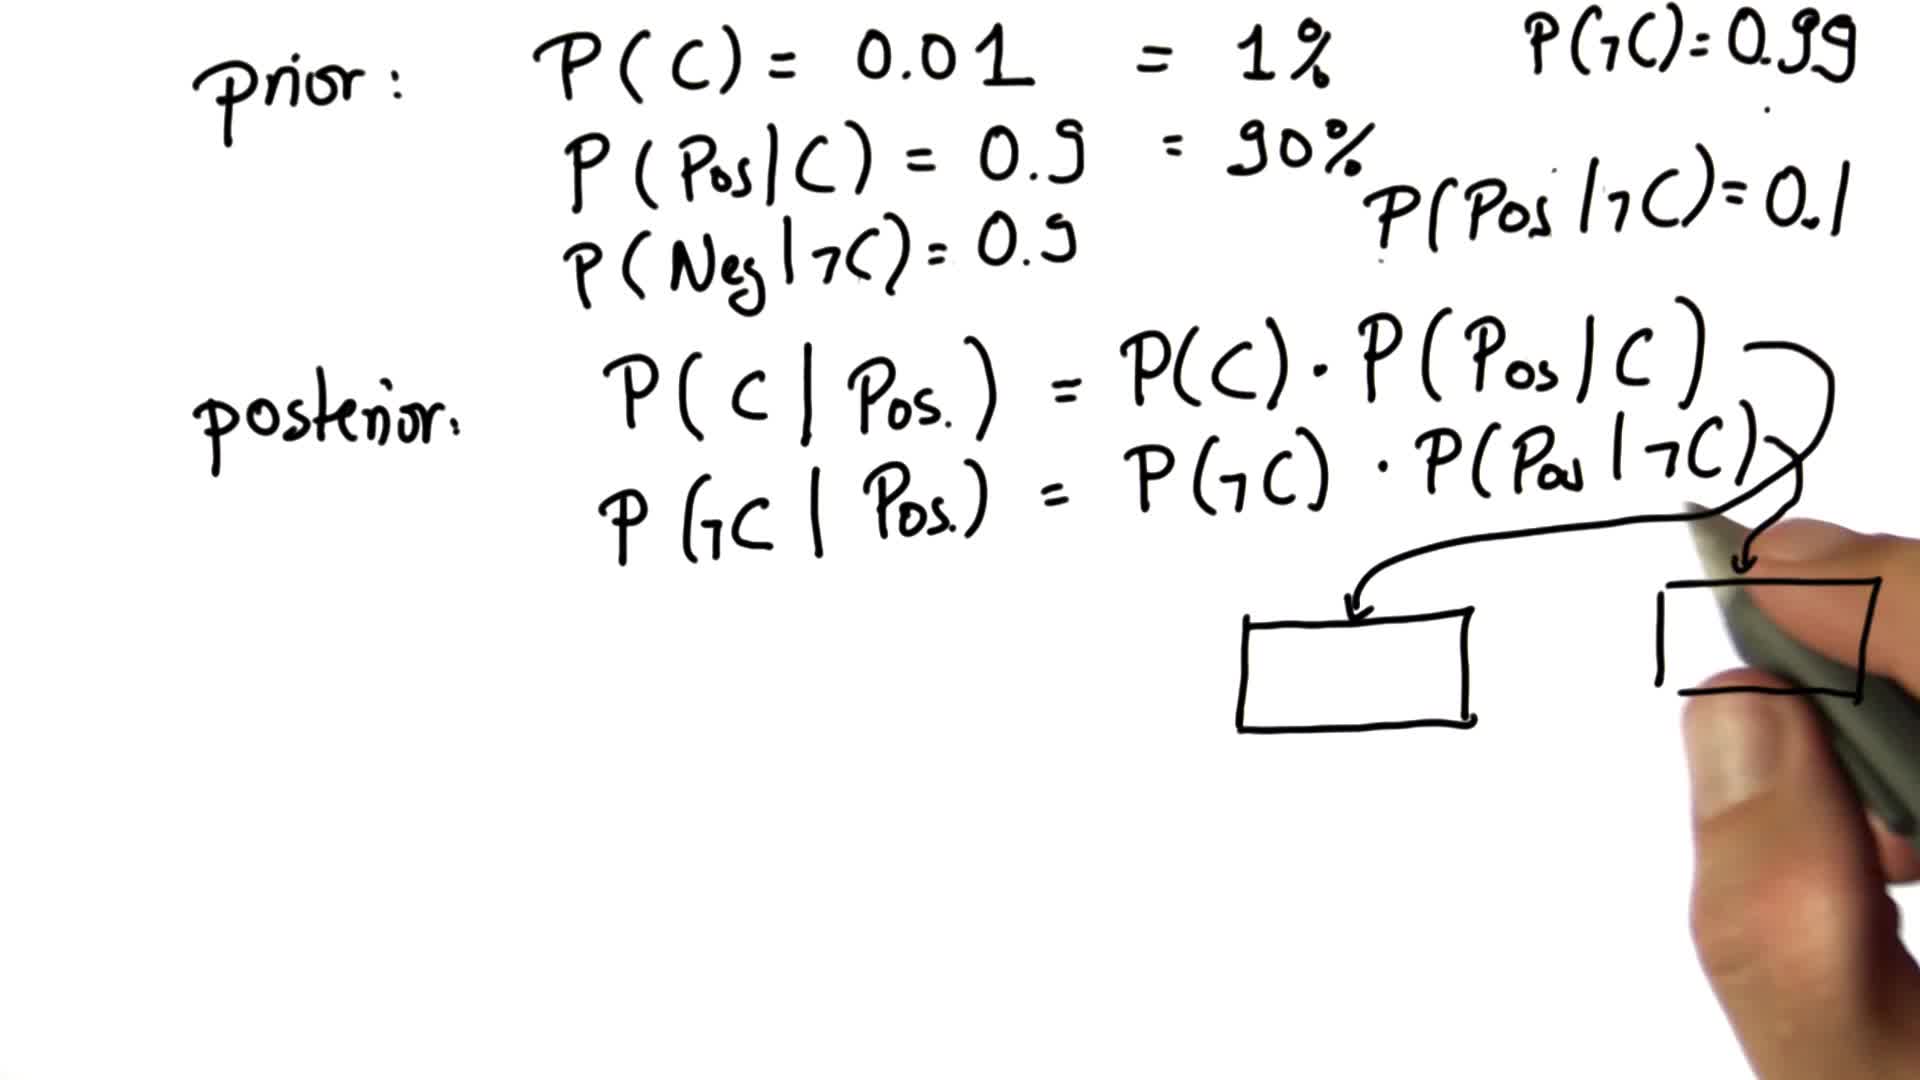 prior: P(C) = 0.01 = 1% P(¬C) = 0.99
P(Pos|C) = 0.9 = 90% P(Pos|¬C) = 0.1
P(Neg|¬C) = 0.9
posterior: P(C|Pos.) = P(C) · P(Pos|C)
P(¬C|Pos.) = P(¬C) · P(Pos|¬C)